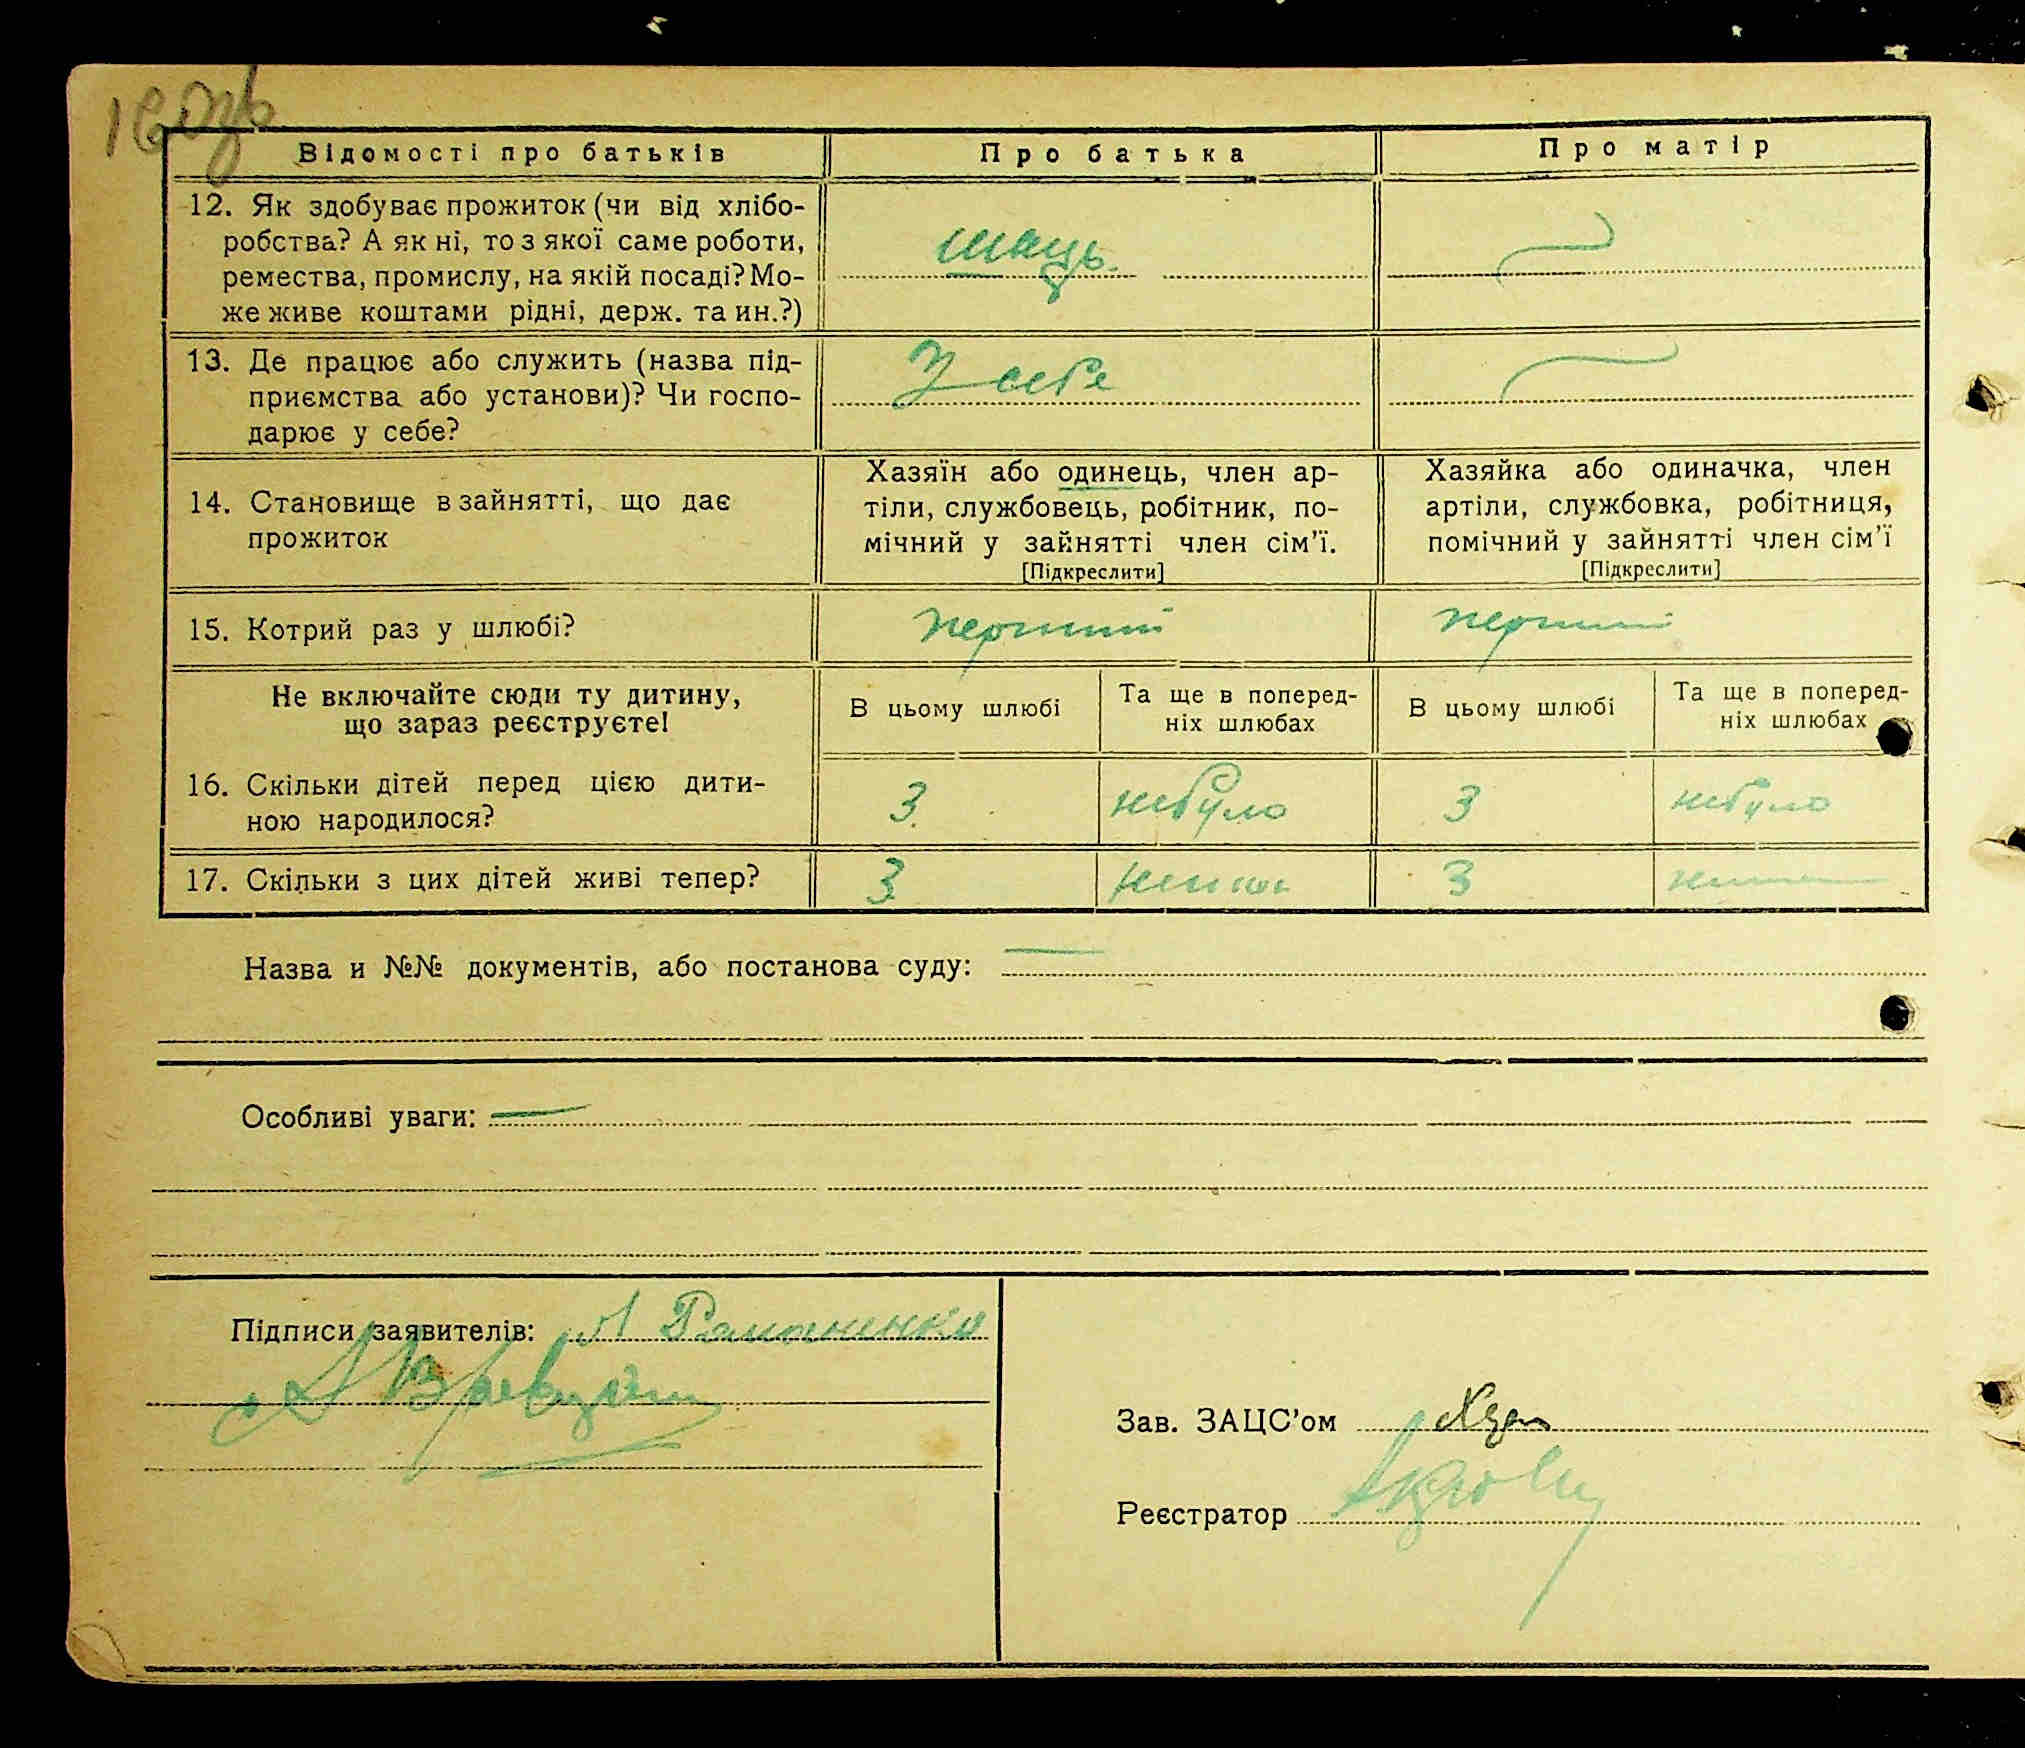 Відомості про батьків
Про батька
Про матір
12. Як здобуває прожиток (чи від хлібо-
робства? А як ні, то з якої саме роботи,
ремества, промислу, на якій посаді? Мо-
же живе коштами рідні, держ. та ин.?)
швець.
13. Де працює або служить (назва під-
приємства або установи)? Чи госпо-
дарює у себе?
У себе
14. Становище в зайнятті, що дає
прожиток
Хазяїн або одинець, член ар-
тіли, службовець, робітник, по-
мічний у зайнятті член сім'ї.
[Підкреслити]
Хазяйка або одиначка, член
артіли, службовка, робітниця,
помічний у зайнятті член сім'ї
[Підкреслити]
15. Котрий раз у шлюбі?
перший
перший
Не включайте сюди ту дитину,
що зараз реєструєте!
В цьому шлюбі
Та ще в поперед-
ніх шлюбах
В цьому шлюбі
Та ще в поперед-
ніх шлюбах
16. Скільки дітей перед цією дити-
ною народилося?
3
небуло
3
небуло
17. Скільки з цих дітей живі тепер?
3
3
Назва и №№ документів, або постанова суду:
Особливі уваги:
Підписи заявителів: А Романенко
Зав. ЗАЦС'ом
Реєстратор